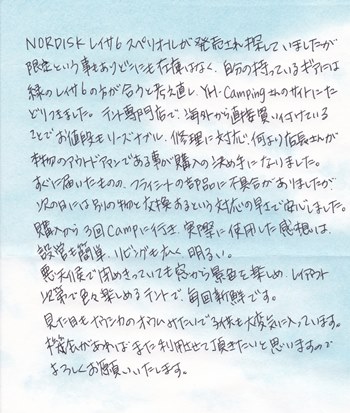 NORDISK レイサ6 スペリオールが発売され探していましたが
限定という事もありどこにも在庫はなく、自分の持っているギアには
緑のレイサ6の方が合うと考え直し、YH-Campingさんのサイトにた
どりつきました。テント専門店で、海外から直接買い付けている
ことでお値段もリーズナブル、修理に対応、何より店長さんが
本物のアウトドアマンである事が購入の決め手になりました。
すぐに届いたものの、フライシートの部品に不具合がありましたが
次の日には別の物と交換あるという対応の早さで安心しました。
購入から3回Campに行き、実際に使用した感想は、
設営も簡単、リビングも広く、明るい。
悪天候で閉めきっていても窓から景色を楽しめ、レイアウト
次第で色々楽しめるテントで、毎回新鮮です。
見た目もナウシカのオウムみたいで子供も大変気に入っています。
機会があればまた利用させて頂きたいと思いますので
よろしくお願いいたします。